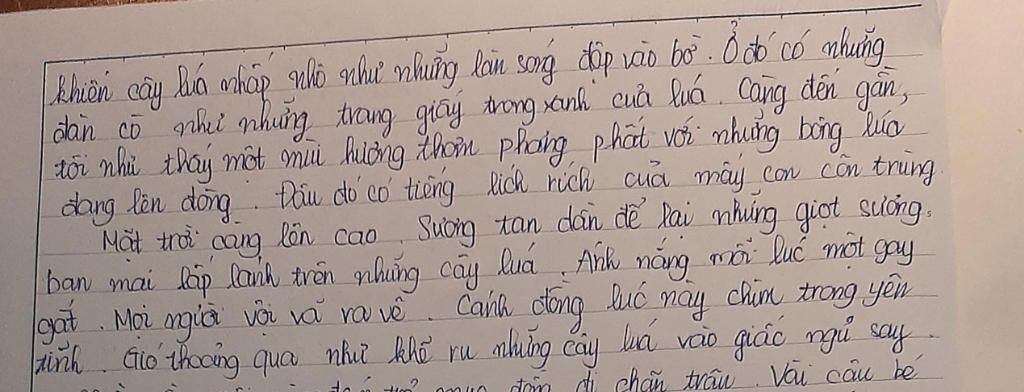 khiến cây lúa nhấp nhô như những làn sóng dập vào bờ. Ở đó có những
đàn cò như những trang giấy trong xanh của lúa. Càng đến gần,
tôi như thấy một mùi hương thơm phang phất với những bông lúa
đang lên đòng. Đâu đó có tiếng lích rích của mấy con côn trùng.
Mặt trời càng lên cao. Sương tan dần để lại những giọt sương
ban mai lấp lánh trên những cây lúa. Ánh nắng mỗi lúc một gay
gắt. Mọi người vội vã ra về. Cánh đồng lúc này chìm trong yên
tĩnh. Gió thoảng qua như khẽ ru những cây lúa vào giấc ngủ say.
đi chăn trâu. Vài cậu bé